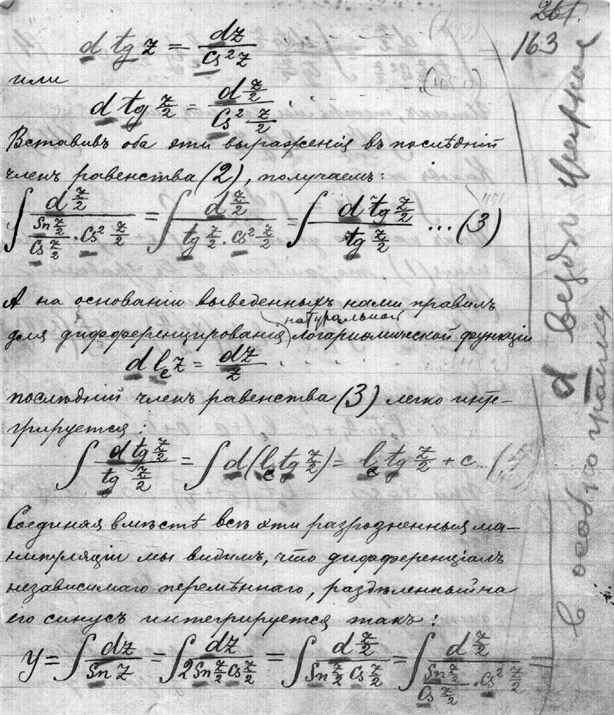 261.
163
d tg z = dz / Cs² z
или
d tg z/2 = d z/2 / Cs² z/2
Вставивъ оба эти выраженія въ послѣдній
членъ равенства (2), получаемъ:
∫ d z/2 / (Sn z/2 / Cs z/2 · Cs² z/2) = ∫ d z/2 / (tg z/2 · Cs² z/2) = ∫ d tg z/2 / tg z/2 ... (3)
А на основаніи выведенныхъ нами правилъ
для дифференцированія натуральной логариѳмической функціи
d lₑ z = dz / z
послѣдній членъ равенства (3) легко инте-
грируется:
∫ d tg z/2 / tg z/2 = ∫ d (lₑ tg z/2) = lₑ tg z/2 + c
Соединяя вмѣстѣ всѣ эти разрозненныя ма-
нипуляціи мы видимъ, что дифференціалъ
независимаго перемѣннаго, раздѣленный на
его синусъ интегрируется такъ:
y = ∫ dz / Sn z = ∫ dz / 2 Sn z/2 Cs z/2 = ∫ d z/2 / Sn z/2 Cs z/2 = ∫ d z/2 / (Sn z/2 / Cs z/2 · Cs² z/2)
d вездѣ